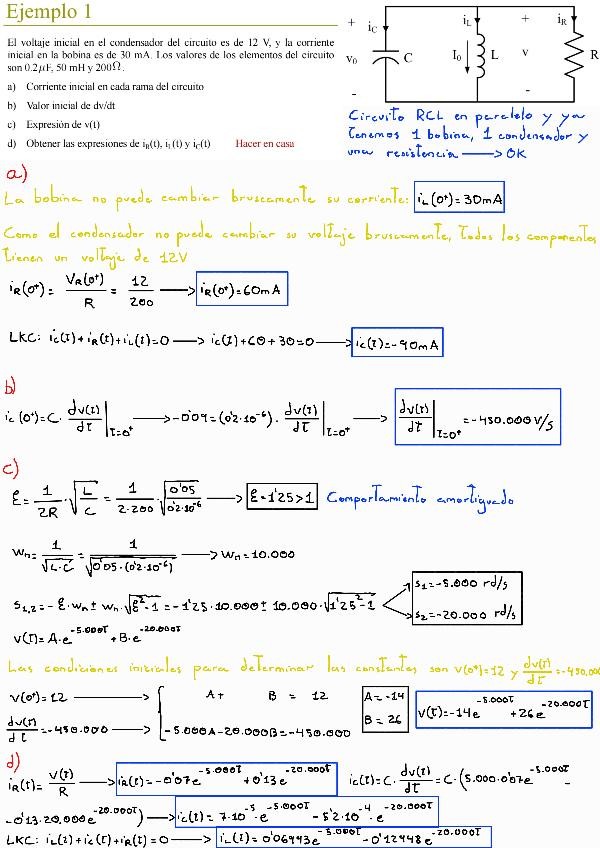 Ejemplo 1
El voltaje inicial en el condensador del circuito es de 12 V, y la corriente
inicial en la bobina es de 30 mA. Los valores de los elementos del circuito
son 0.2μF, 50 mH y 200Ω.
a) Corriente inicial en cada rama del circuito
b) Valor inicial de dv/dt
c) Expresión de v(t)
d) Obtener las expresiones de iR(t), iL(t) y iC(t) Hacer en casa
+ iC iL + iR
v0 C I0 L v R
- -
Circuito RCL en paralelo y ya
tenemos 1 bobina, 1 condensador y
una resistencia → OK
a)
La bobina no puede cambiar bruscamente su corriente: iL(0⁺) = 30mA
Como el condensador no puede cambiar su voltaje bruscamente, todos los componentes
tienen un voltaje de 12V
iR(0⁺) = VR(0⁺)/R = 12/200 → iR(0⁺) = 60mA
LKC: ic(t) + iR(t) + iL(t) = 0 → ic(t) + 60 + 30 = 0 → ic(t) = -90mA
b)
ic(0⁺) = C · dv(t)/dt |t=0⁺ → -0'09 = (0'2·10⁻⁶) · dv(t)/dt |t=0⁺ → dv(t)/dt |t=0⁺ = -450.000 V/s
c)
ξ = 1/2R · √(L/C) = 1/(2·200) · √(0'05/0'2·10⁻⁶) → ξ = 1'25 > 1 Comportamiento amortiguado
Wn = 1/√(L·C) = 1/√(0'05·(0'2·10⁻⁶)) → Wn = 10.000
S1,2 = -ξ·Wn ± Wn·√(ξ²-1) = -1'25·10.000 ± 10.000·√(1'25²-1) S1 = -5.000 rd/s
S2 = -20.000 rd/s
v(t) = A·e^-5.000t + B·e^-20.000t
Las condiciones iniciales para determinar las constantes son v(0⁺)=12 y dv(t)/dt = -450.000
v(0⁺) = 12 → A + B = 12 A = -14
dv(t)/dt = -450.000 → -5.000A - 20.000B = -450.000 B = 26 v(t) = -14e^-5.000t + 26e^-20.000t
d)
iR(t) = v(t)/R → iR(t) = -0'07e^-5.000t + 0'13e^-20.000t ic(t) = C · dv(t)/dt = C·(5.000·0'07e^-5.000t -
-0'13·20.000e^-20.000t) → ic(t) = 7·10⁻⁵·e^-5.000t - 5'2·10⁻⁴·e^-20.000t
LKC: iL(t) + ic(t) + iR(t) = 0 → iL(t) = 0'06993e^-5.000t - 0'12948e^-20.000t